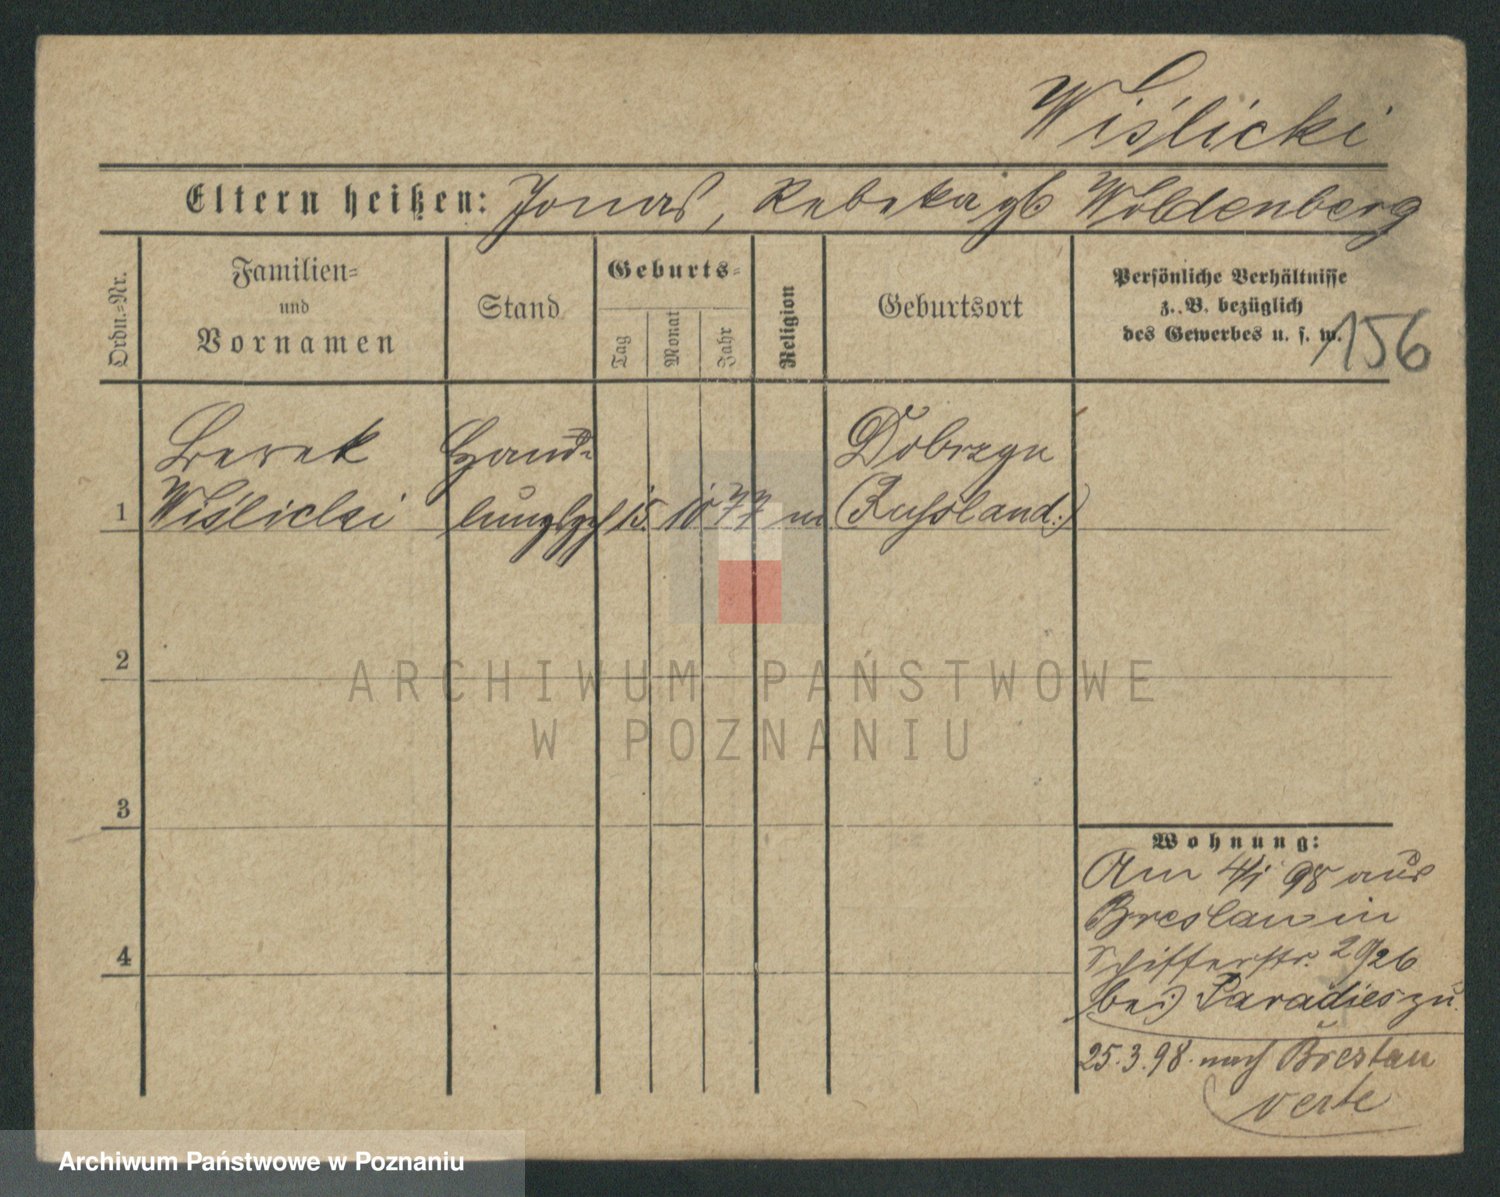 Wiślicki
Eltern heißen: Jonas, Rebeka gb Woldenberg
Ordn.-Nr.
Familien-
und
Vornamen
Stand
Geburts-
Tag
Monat
Jahr
Religion
Geburtsort
Persönliche Verhältnisse
z. B. bezüglich
des Gewerbes u. s. w.
156
Berek Hand- Dobrzyn
1 Wiślicki lungsgh 15. 10 77 m (Russland.)
2
3
4
Wohnung:
Am 4/1 98 aus
Breslau in
Schifferstr.
bei Paradies zu.
25.3.98. nach Breslau
verte
ARCHIWUM PAŃSTWOWE
W POZNANIU
Archiwum Państwowe w Poznaniu